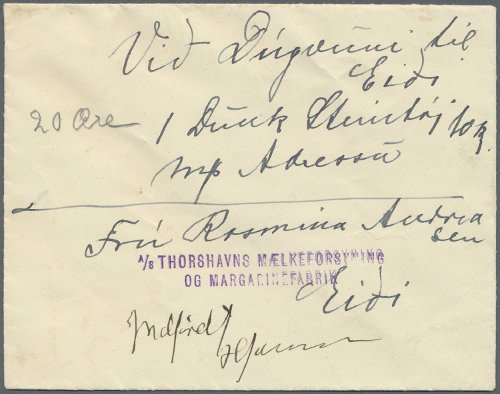 Við Dúgvuni til
Eiði
20 Øre
1 Dunk Stentøj 10 kg
mp Adressu
Frú Rosmina Andrea
sen
A/S THORSHAVNS MÆLKEFORSYNING
OG MARGARINEFABRIK
Eiði
Indførdt